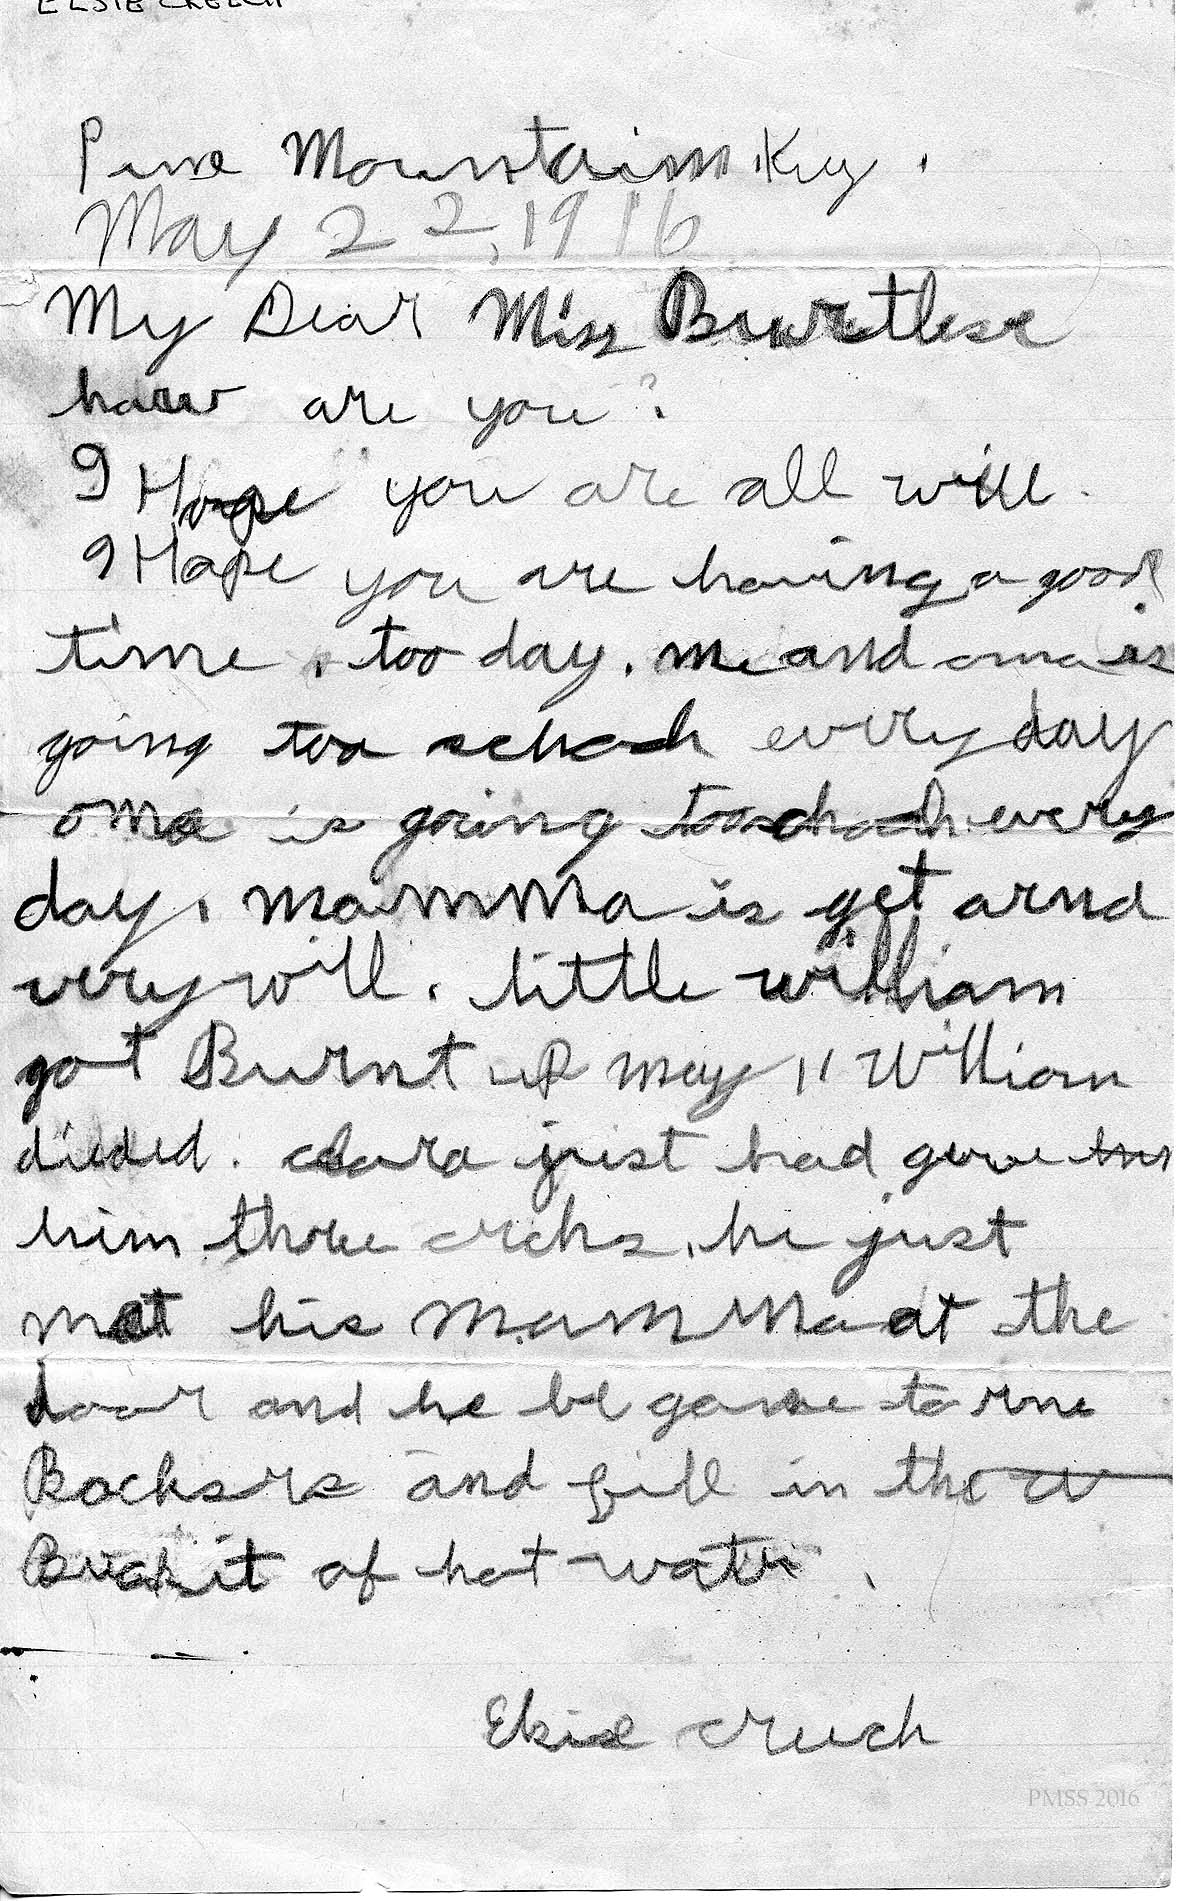 ELSIE CREECH
Pine Mountain Ky.
May 22, 1916
My Dear Miss
haw are you?
I Hope you are all will.
I Hope you are having a good
time. too day. me and oma is
going too school every day
oma is going too school every
day. MamMa is get arnd
very will. little william
got Burnt up May 11 William
dieded. clara just had gave
him three crcks. he just
met his MamMa at the
door and he be gane to rne
Backsrs and fill in the
Buckit of hot watr.
Elsie creech
PMSS 2016